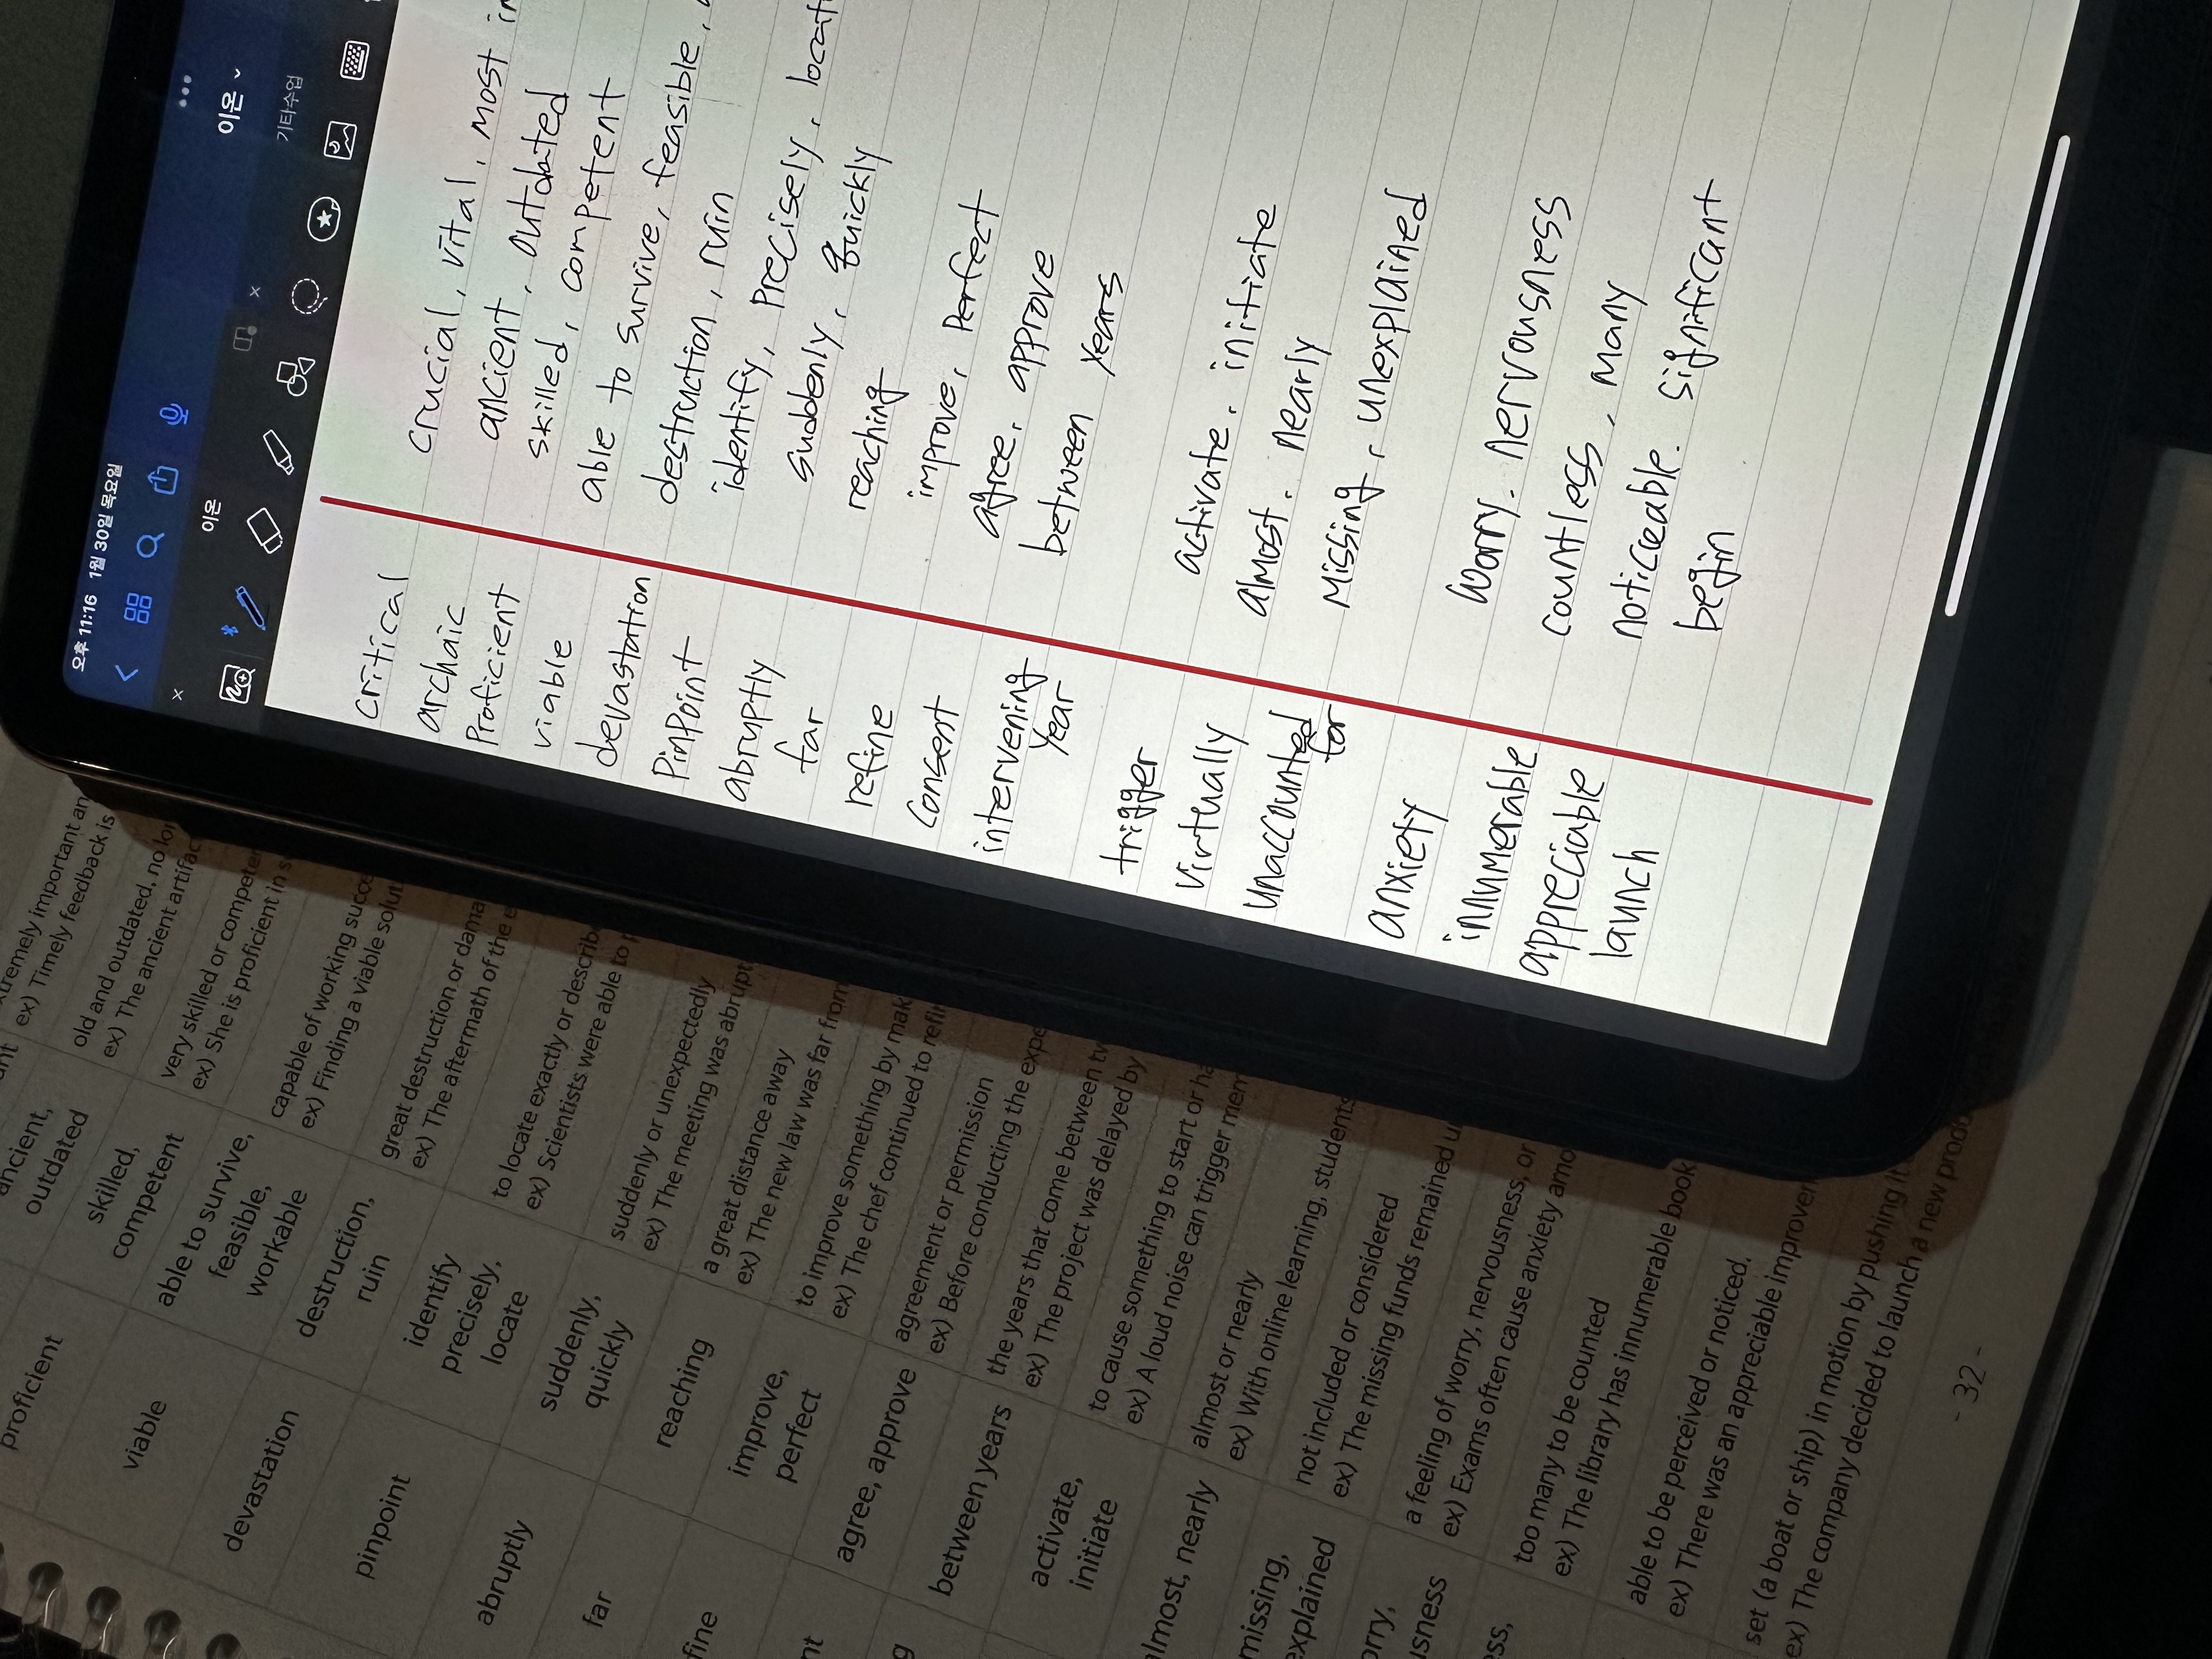 오후 11:16 1월 30일 목요일
이온
이온
기타수업
critical
crucial, vital, most
archaic
ancient, outdated
Proficient
skilled, competent
viable
able to survive, feasible,
devastation
destruction, ruin
Pinpoint
identify, precisely, locat
abruptly
suddenly, quickly
far
reaching
refine
improve, perfect
consent
agree, approve
intervening
year
between years
trigger
activate, initiate
virtually
almost, nearly
unaccounted
for
Missing, unexplained
anxiety
worry, nervousness
innumerable
countless, many
appreciable
noticeable, significant
launch
begin
extremely important an
ex) Timely feedback is
ancient,
outdated
old and outdated, no lo
ex) The ancient artifac
proficient
skilled,
competent
very skilled or compete
ex) She is proficient in s
viable
able to survive,
feasible,
workable
capable of working succe
ex) Finding a viable solut
devastation
destruction,
ruin
great destruction or dama
ex) The aftermath of the e
pinpoint
identify
precisely,
locate
to locate exactly or describ
ex) Scientists were able to p
abruptly
suddenly,
quickly
suddenly or unexpectedly
ex) The meeting was abrupt
far
reaching
a great distance away
ex) The new law was far from
fine
improve,
perfect
to improve something by mak
ex) The chef continued to refin
nt
agree, approve
agreement or permission
ex) Before conducting the expe
g
between years
the years that come between tw
ex) The project was delayed by
activate,
initiate
to cause something to start or ha
ex) A loud noise can trigger mem
almost, nearly
almost or nearly
ex) With online learning, students
missing,
explained
not included or considered
ex) The missing funds remained u
orry,
usness
a feeling of worry, nervousness, or
ex) Exams often cause anxiety amo
ess,
too many to be counted
ex) The library has innumerable book
able to be perceived or noticed,
ex) There was an appreciable improvem
set (a boat or ship) in motion by pushing it
ex) The company decided to launch a new prod
- 32 -